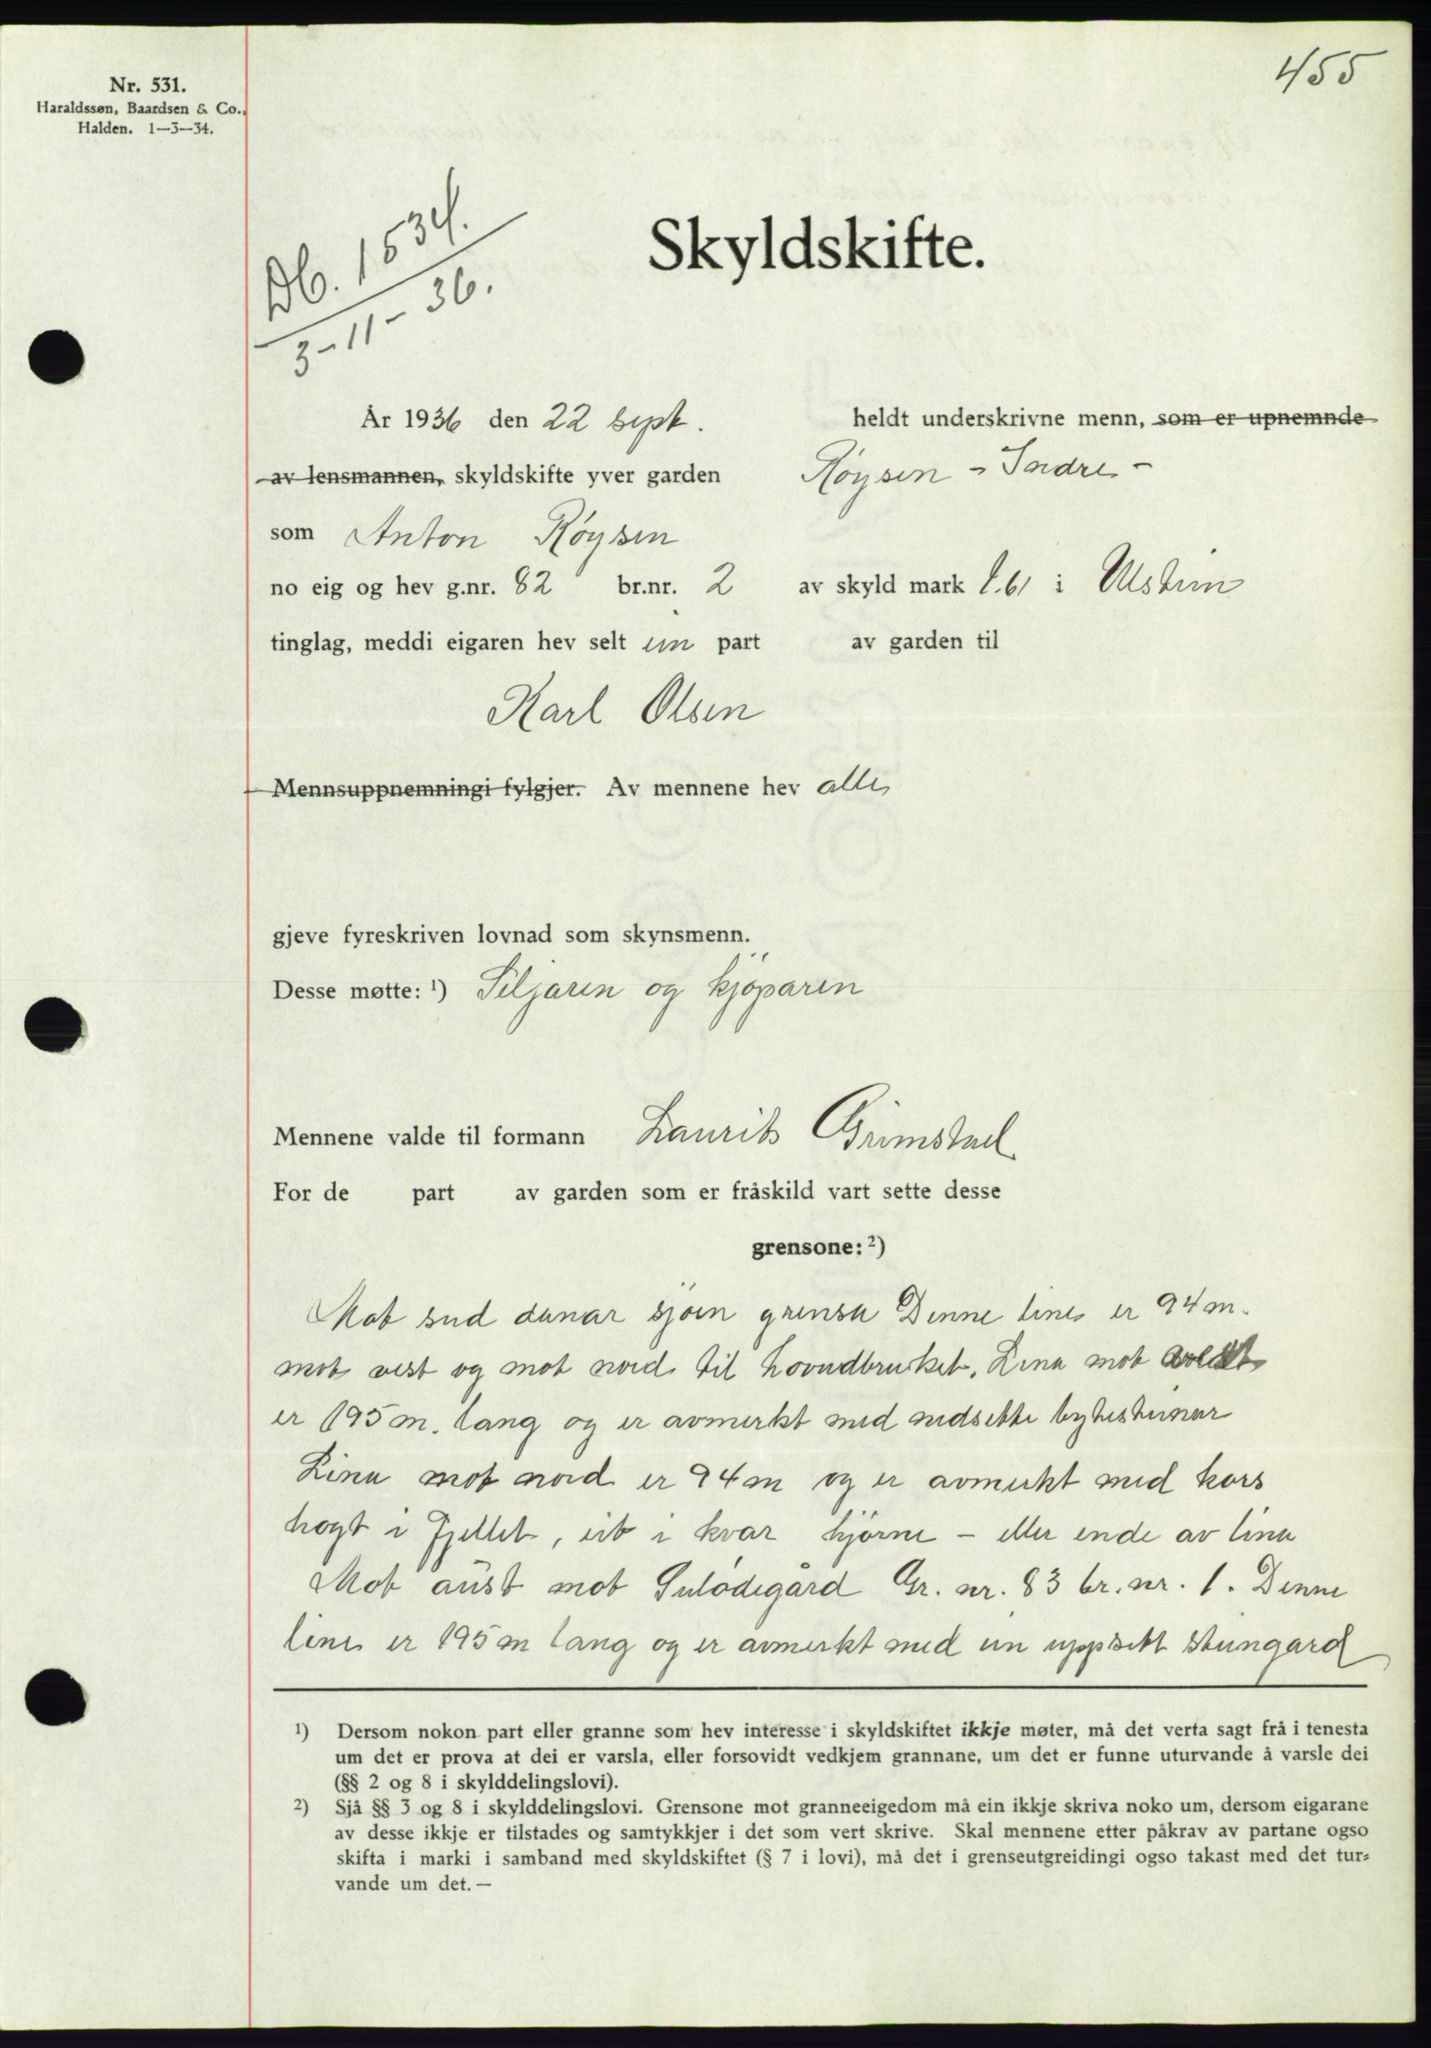 455
Nr. 531.
Haraldssøn, Baardsen & Co.,
Halden. 1—3—34.
Db. 1534.
3-11-36.
Skyldskifte.
År 1936 den 22 sept. heldt underskrivne menn, som er upnemnde
av lensmannen, skyldskifte yver garden Røysen - Indre -
som Anton Røysen
no eig og hev g.nr. 82 br.nr. 2 av skyld mark 1.61 i Ulstein
tinglag, meddi eigaren hev selt ein part av garden til
Karl Olsen
Mennsuppnemningi fylgjer. Av mennene hev alle
gjeve fyreskriven lovnad som skynsmenn.
Desse møtte: ¹) Seljaren og kjöparen
Mennene valde til formann Laurits Grimstad
For de part av garden som er fråskild vart sette desse
grensone: ²)
Mot sud danar sjøen grensa Denne line er 94 m.
mot vest og mot nord til hovudbruket. Lina mot
er 195 m. lang og er avmerkt med nedsette byttesteinar
Lina mot nord er 94 m og er avmerkt med kors
hogt i fjellet, eit i kvar hjørne - eller ende av lina
Mot aust mot Gr. nr. 83 br. nr. 1. Denne
line er 195 m lang og er avmerkt med ein uppsett steingard
¹) Dersom nokon part eller granne som hev interesse i skyldskiftet ikkje møter, må det verta sagt frå i tenesta
um det er prova at dei er varsla, eller forsovidt vedkjem grannane, um det er funne uturvande å varsle dei
(§§ 2 og 8 i skylddelingslovi).
²) Sjå §§ 3 og 8 i skylddelingslovi. Grensone mot granneeigedom må ein ikkje skriva noko um, dersom eigarane
av desse ikkje er tilstades og samtykkjer i det som vert skrive. Skal mennene etter påkrav av partane ogso
skifta i marki i samband med skyldskiftet (§ 7 i lovi), må det i grenseutgreidingi ogso takast med det tur-
vande um det. —